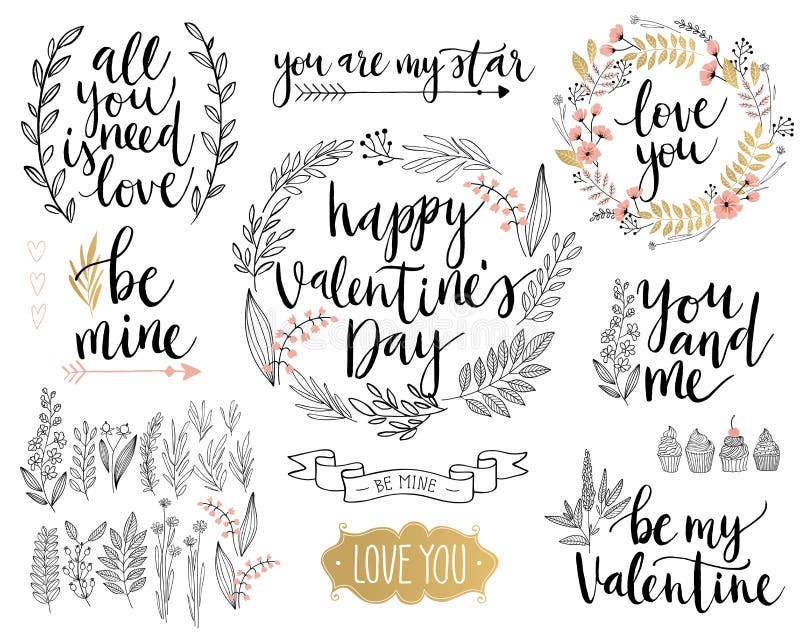 all
you
is need
love
you are my star
love
you
be
mine
happy
Valentine's
Day
you
and
me
BE MINE
LOVE YOU
be my
Valentine